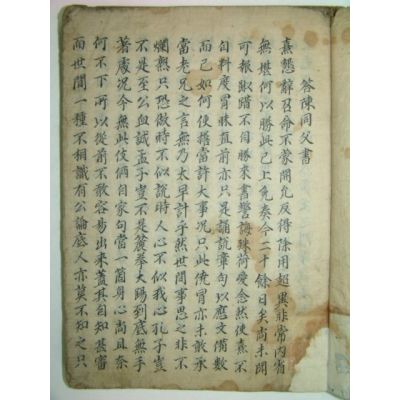 答陳同父書
熹懇辭召命不蒙開允反得除用超異非常內省
無堪何以勝此已上免奏今二十餘日矣尚未聞
可報踧踖不自勝來書警誨殊荷愛念然使熹不
自料度冒昧直前亦只是誦說章句以應文備數
而已如何便擔當許大事況只此僥冒亦未敢承
當老兄之言無乃太早計乎然世間事思之非不
爛熟只恐做時不似說時人心不似我心孔子豈
不是至公血誠孟子豈不是麄拳大踢到底無手
著處況今無此伎倆自家勾當一箇身心尚且奈
何不下所以從前不敢容易出來蓋其自知甚審
而世間一種不相識有公論底人亦莫不知之只